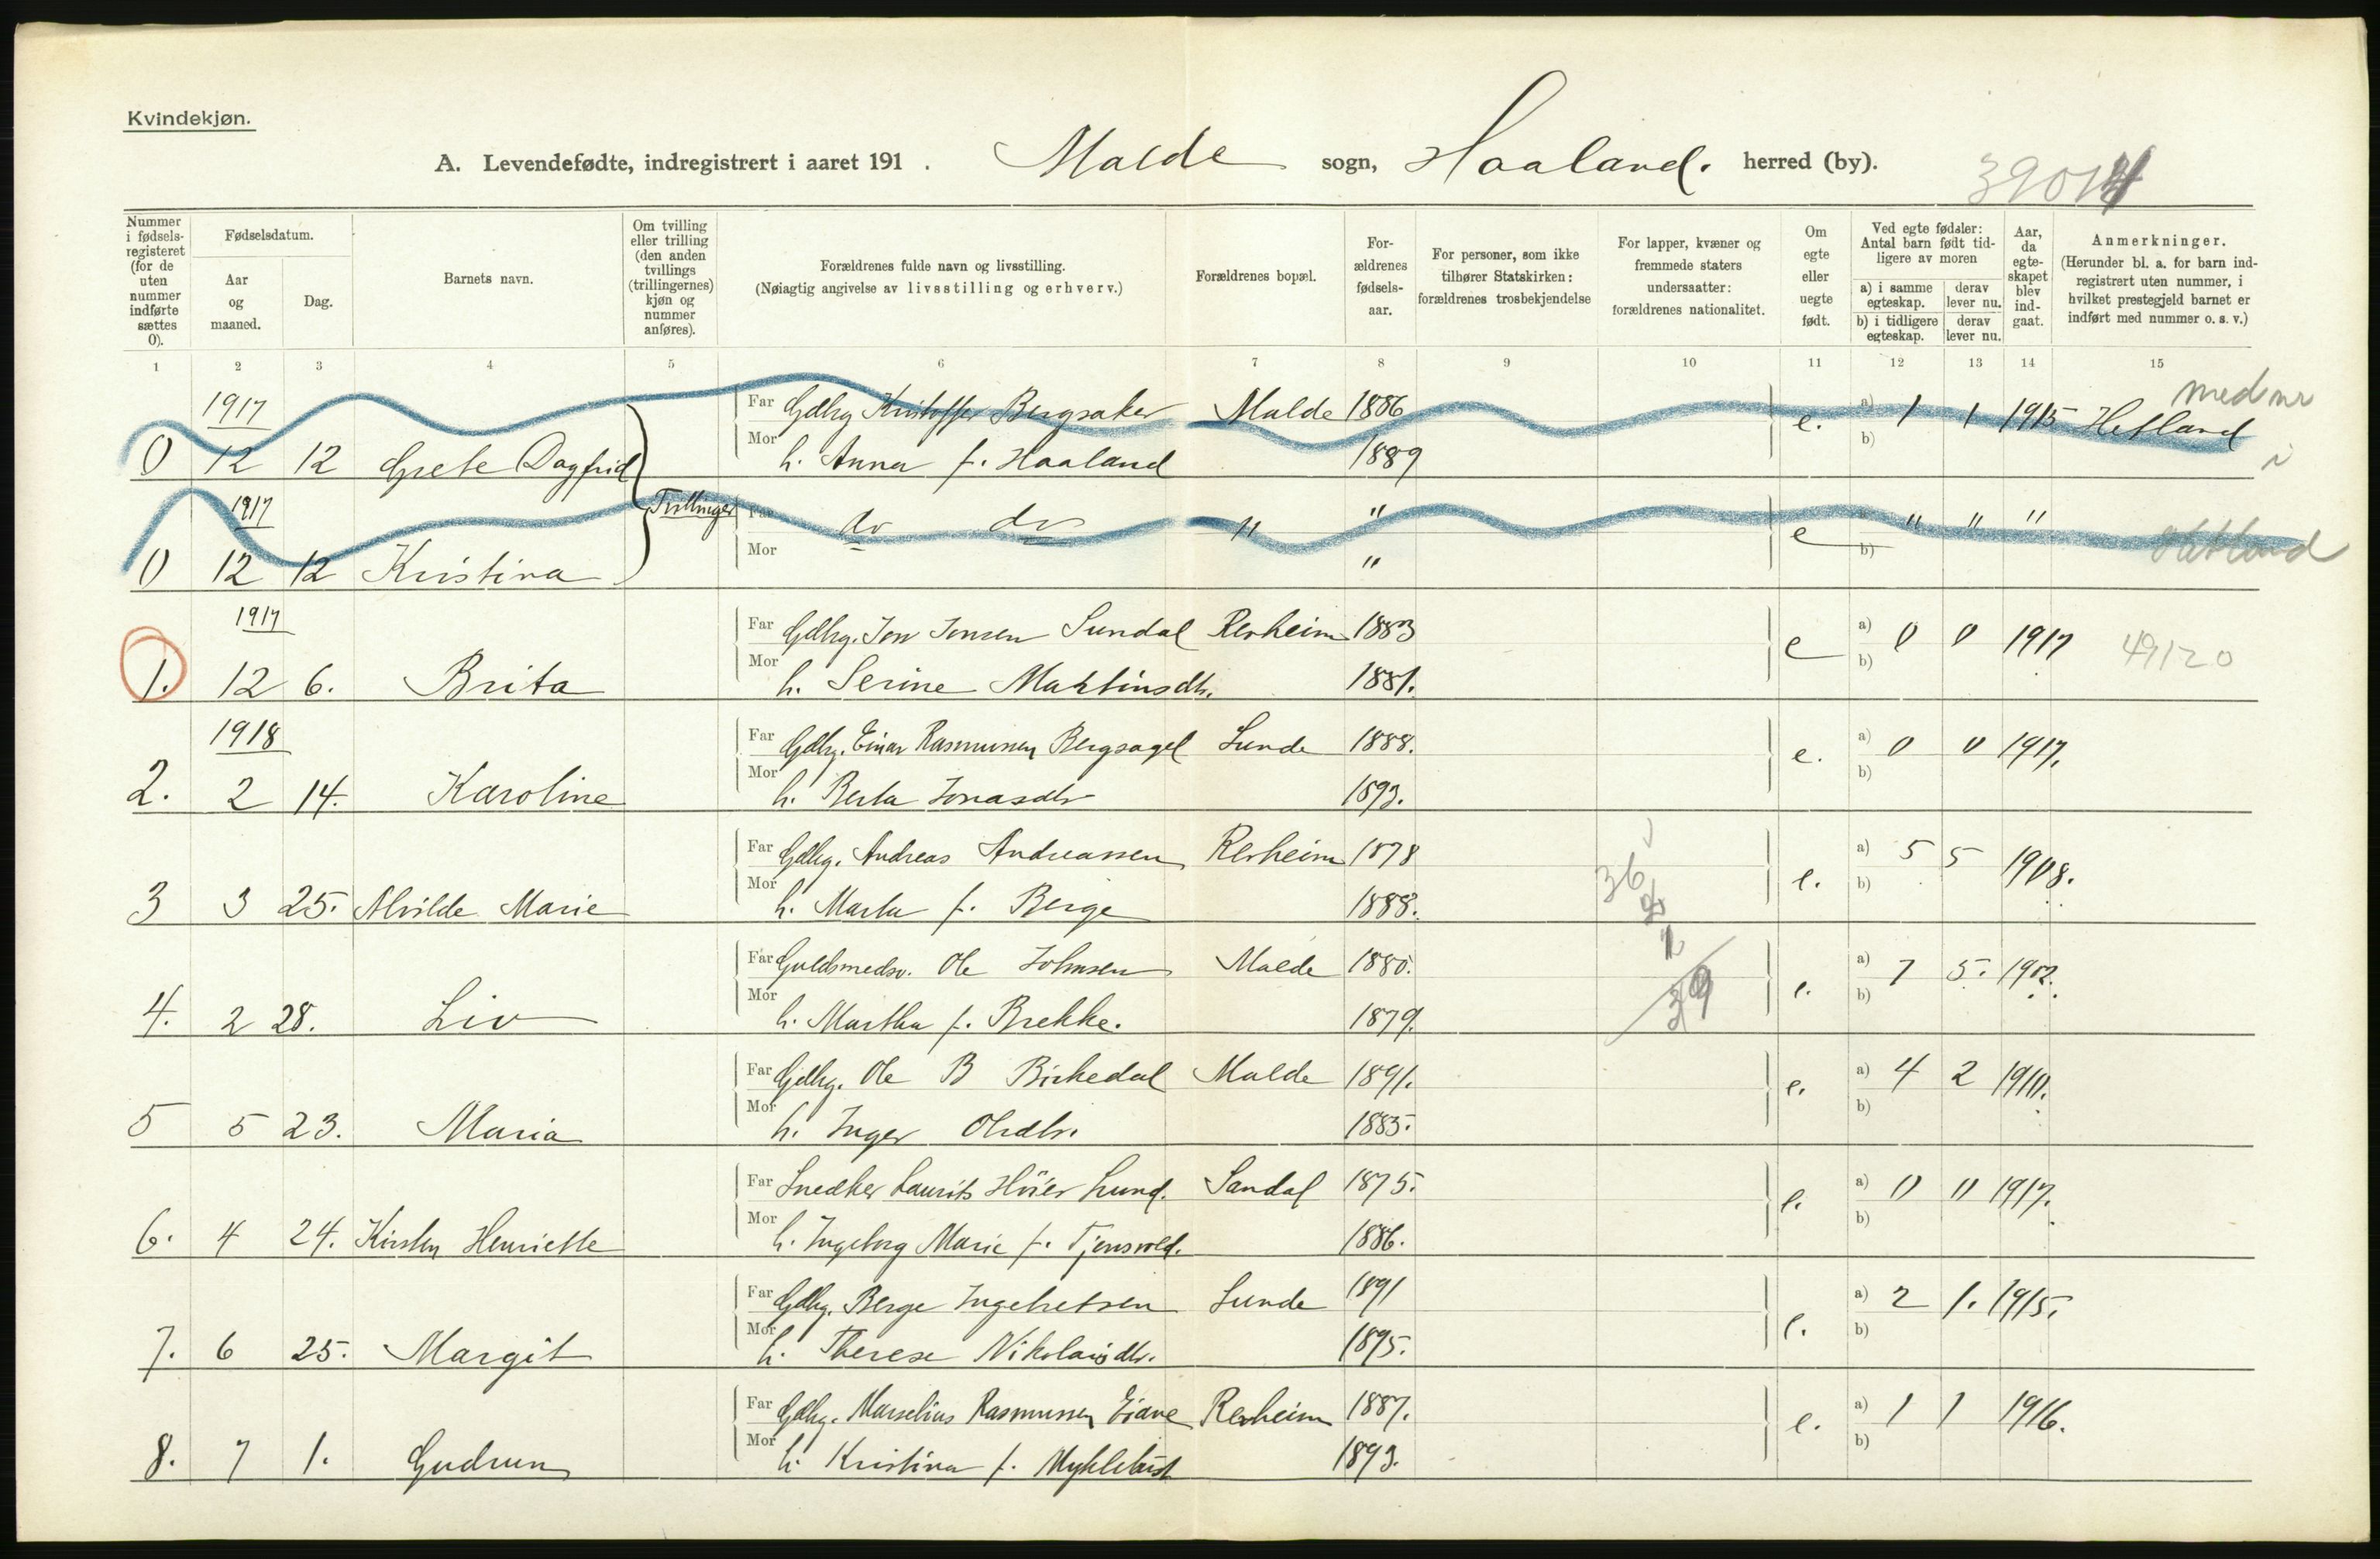 Kvindekjøn.
A. Levendefødte, indregistrert i aaret 191 . Malde sogn, Haaland. herred (by).
Nummer i fødsels-registeret (for de uten nummer indførte sættes 0).
Fødselsdatum.
Aar og maaned.
Dag.
Barnets navn.
Om tvilling eller trilling (den anden tvillings (trillingernes) kjøn og nummer anføres).
Forældrenes fulde navn og livsstilling.
(Nøiagtig angivelse av livsstilling og erhverv.)
Forældrenes bopæl.
For-ældrenes fødsels-aar.
For personer, som ikke tilhører Statskirken: forældrenes trosbekjendelse
For lapper, kvæner og fremmede staters undersaatter: forældrenes nationalitet.
Om egte eller uegte født.
Ved egte fødsler: Antal barn født tid-ligere av moren
a) i samme egteskap.
derav lever nu.
b) i tidligere egteskap.
derav lever nu.
Aar, da egte-skapet blev ind-gaat.
Anmerkninger.
(Herunder bl. a. for barn ind-registrert uten nummer, i hvilket prestegjeld barnet er indført med nummer o. s. v.)
1 2 3 4 5 6 7 8 9 10 11 12 13 14 15
1917 Far Gdbrg Kristoffer Bergsaker Malde 1886 e. a) 1 1 1915 Hetland med nr i
0 12 12 Grete Dagfrid Mor h. Anna f. Haaland 1889 b)
1917 Tvillinger Far do do " " e " " " Hetland
0 12 12 Kristina Mor " b)
1917 Far Gdbrg. Jon Jonsen Sundal Revheim 1883 e a) 0 0 1917 49120
1. 12 6. Brita Mor h. Serine Martinsdtr. 1881. b)
1918 Far Gdbrg. Einar Rasmussen Bergsagel Sunde 1888. e. a) 0 0 1917.
2. 2 14. Karoline Mor h. Berta Jonasdtr 1893. b)
Far Gdbrg. Andreas Andreassen Revheim 1878 e. a) 5 5 1908.
3 3 25. Alvilde Marie Mor h. Marta f. Berge 1888. b)
36
Far Guldsmedsv. Ole Johnsen Malde 1880. e. a) 7 5. 1902.
4. 2 28. Liv Mor h. Martha f. Brekke. 1879. b)
39
Far Gdbrg. Ole B Birkedal Malde 1891. e. a) 4 2 1911.
5 5 23. Maria Mor h. Inger Olsdtr. 1885. b)
Far Snedker Laurits Höier Lund. Sandal 1875. e. a) 0 0 1917.
6. 4 24. Kirsten Henriette Mor h. Ingeborg Marie f. Tjensvold. 1886. b)
Far Gdbrg. Berge Ingebretsen Sunde 1891 e. a) 2 1. 1915.
7. 6 25. Margit Mor h. Therese Nikolaisdtr. 1895. b)
Far Gdbrg. Marselius Rasmussen Eiane Revheim 1887. e. a) 1 1 1916.
8. 7 1. Gudrun Mor h. Kristina f. Myklebust 1893. b)